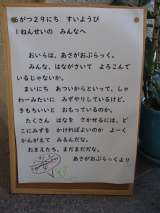 6がつ29にち すいようび
1ねんせいの みんなへ
おいらは、あさがおぶらっく。
みんな、はながさいて よろこんで
いるじゃないか。
まいにち あついからといって、しゃ
わーみたいに みずやりしているけど、
きもちいいと おもっているのか。
たくさん はなを さかせるには、ど
こにみずを かければよいのか よーく
かんがえて みるんだな。
おまえたち、まだまだだな。
あさがおぶらっくより